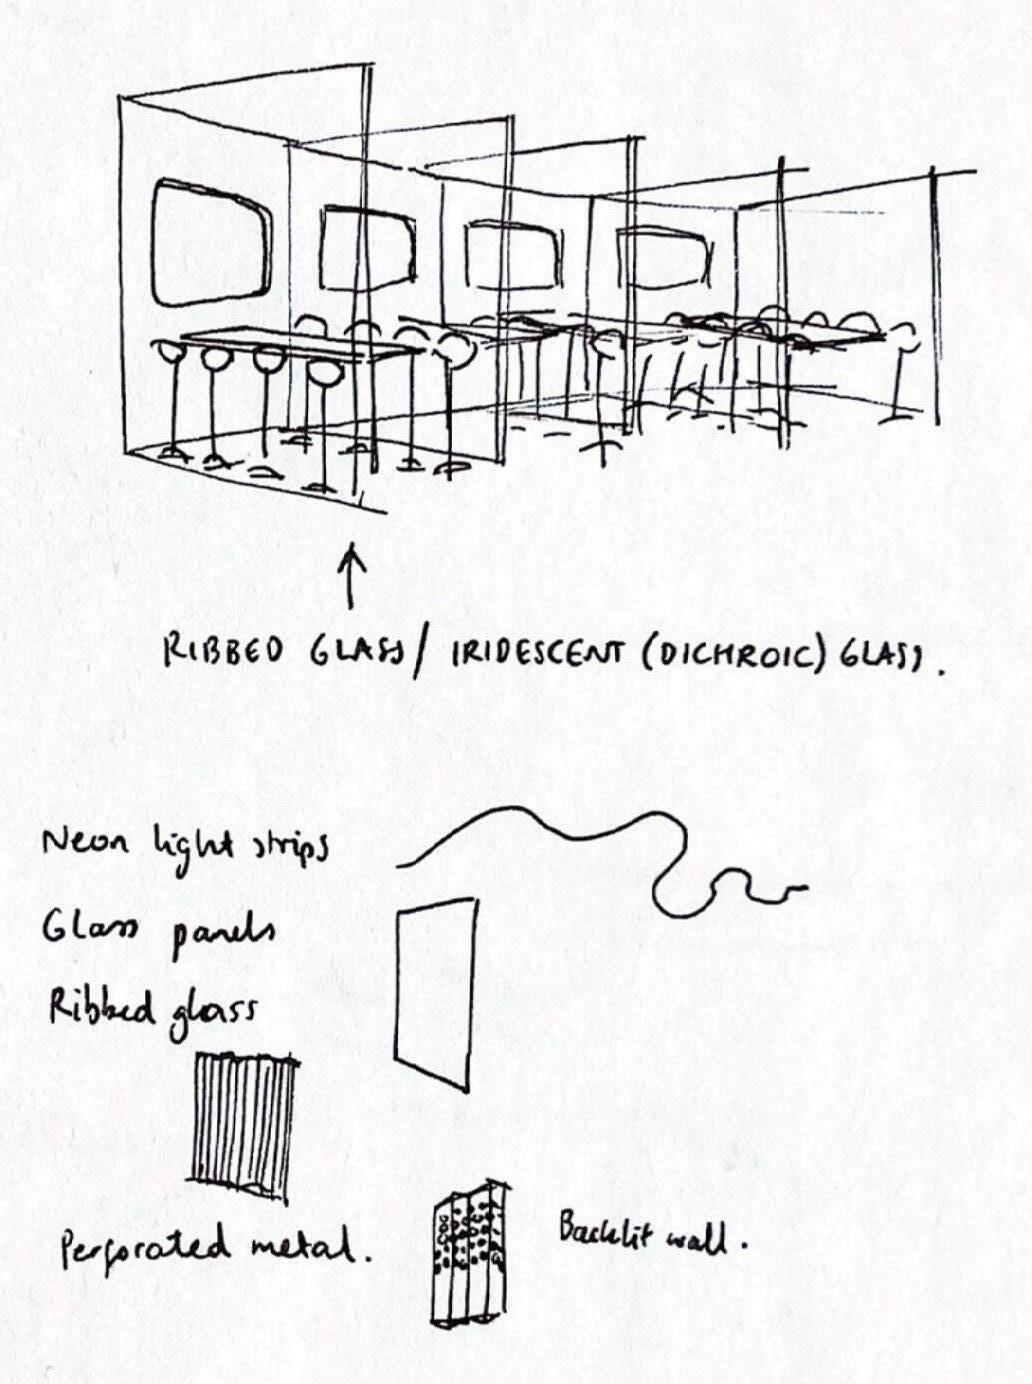 RIBBED GLASS/ IRIDESCENT (DICHROIC) GLASS.
Neon light strips
Glass panels
Ribbed glass
Perforated metal.
Backlit wall.